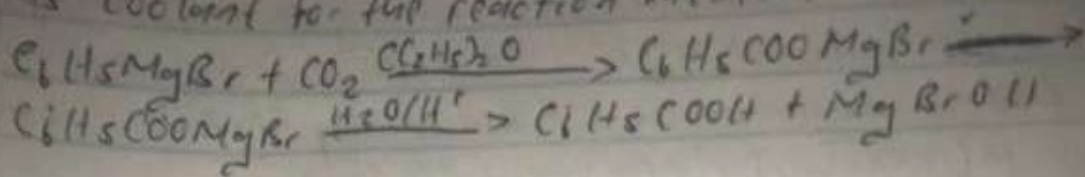 is coolant for the reaction
C6H5MgBr + CO2 (C2H5)2O → C6H5COOMgBr →
C6H5COOMgBr H2O/H+ → C6H5COOH + MgBrOH